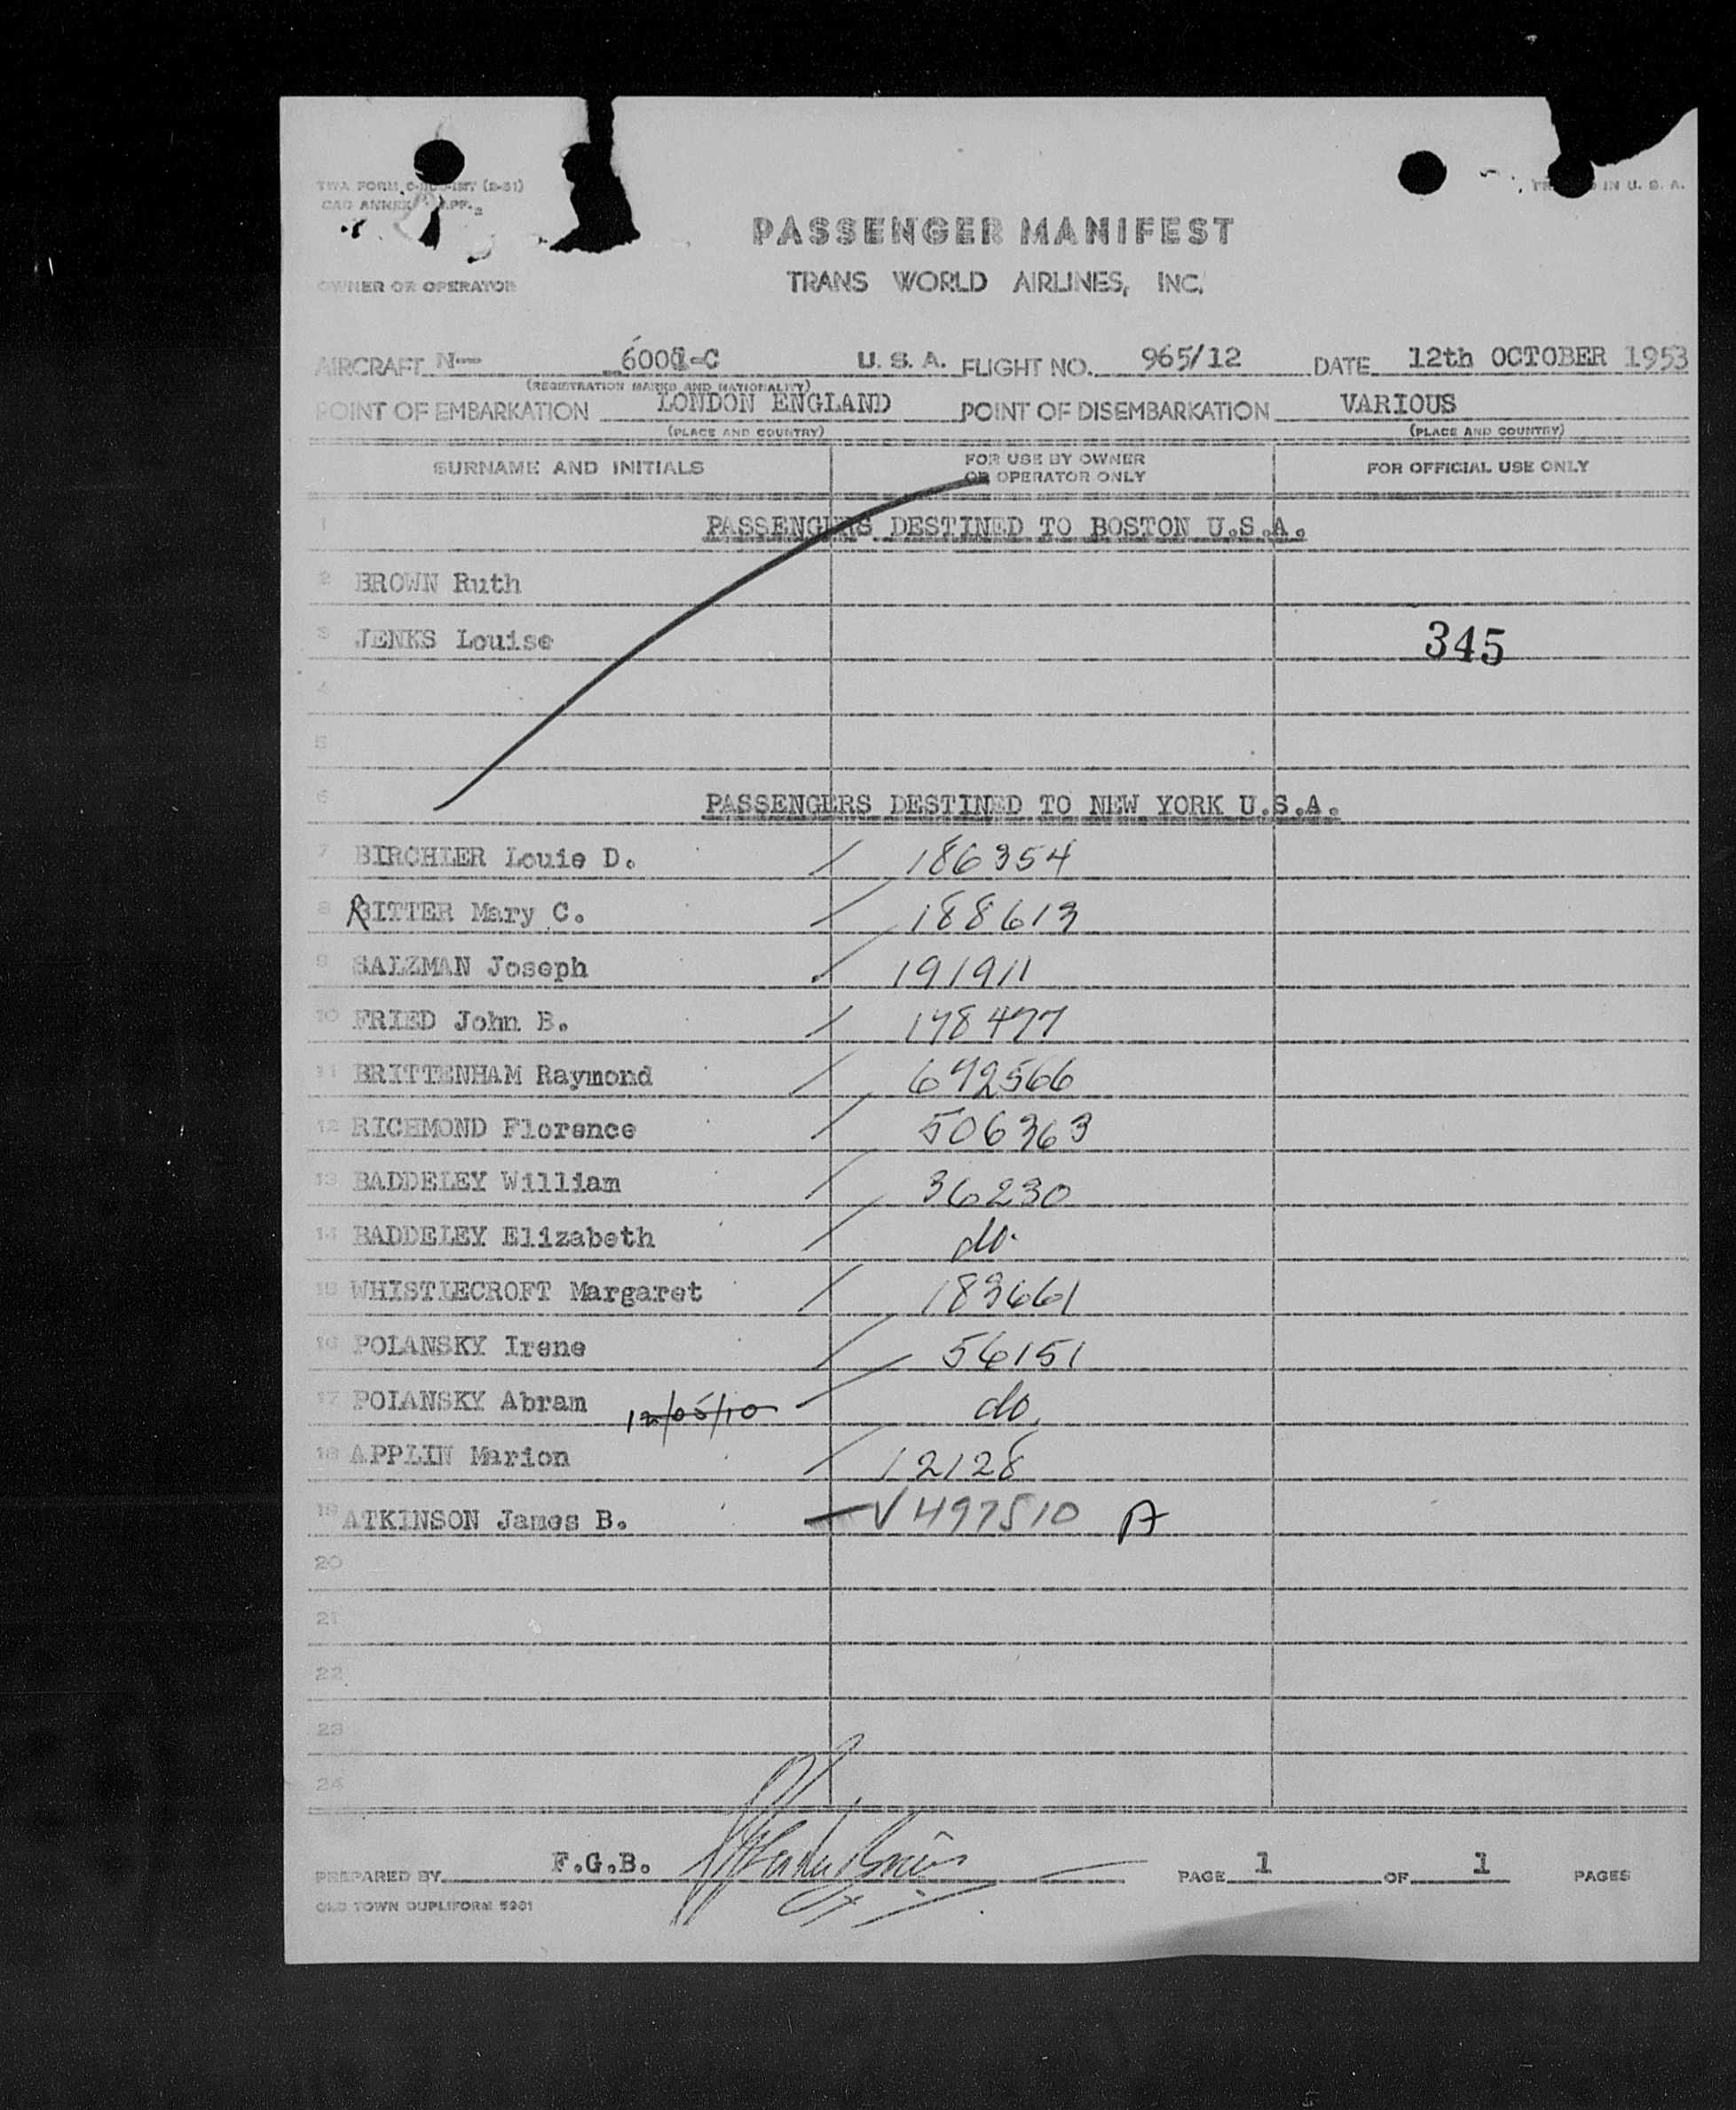 TWA FORM
CAO ANNEX APP. 2
IN U. S. A.
PASSENGER MANIFEST
TRANS WORLD AIRLINES, INC.
OWNER OR OPERATOR
AIRCRAFT N-- U. S. A. FLIGHT NO. 965/12 DATE 12th OCTOBER 1953
(REGISTRATION MARKS AND NATIONALITY)
POINT OF EMBARKATION LONDON ENGLAND POINT OF DISEMBARKATION VARIOUS
(PLACE AND COUNTRY) (PLACE AND COUNTRY)
SURNAME AND INITIALS FOR USE BY OWNER OR OPERATOR ONLY FOR OFFICIAL USE ONLY
1 PASSENGERS DESTINED TO BOSTON U.S.A.
2 BROWN Ruth
3 JENKS Louise 345
4
5
6 PASSENGERS DESTINED TO NEW YORK U.S.A.
7 BIRCHLER Louie D. / 186354
8 RITTER Mary C. / 188613
9 SALZMAN Joseph / 191911
10 FRIED John B. / 178477
11 BRITTENHAM Raymond / 692566
12 RICHMOND Florence / 506363
13 BADDELEY William / 36230
14 BADDELEY Elizabeth / do.
15 WHISTLECROFT Margaret / 183661
16 POLANSKY Irene / 56151
17 POLANSKY Abram 12/05/10 / do.
18 APPLIN Marion / 12128
19 ATKINSON James B. V497510 A
20
21
22
23
24
PREPARED BY F.G.B. PAGE 1 OF 1 PAGES
OLD TOWN DUPLIFORM 5981